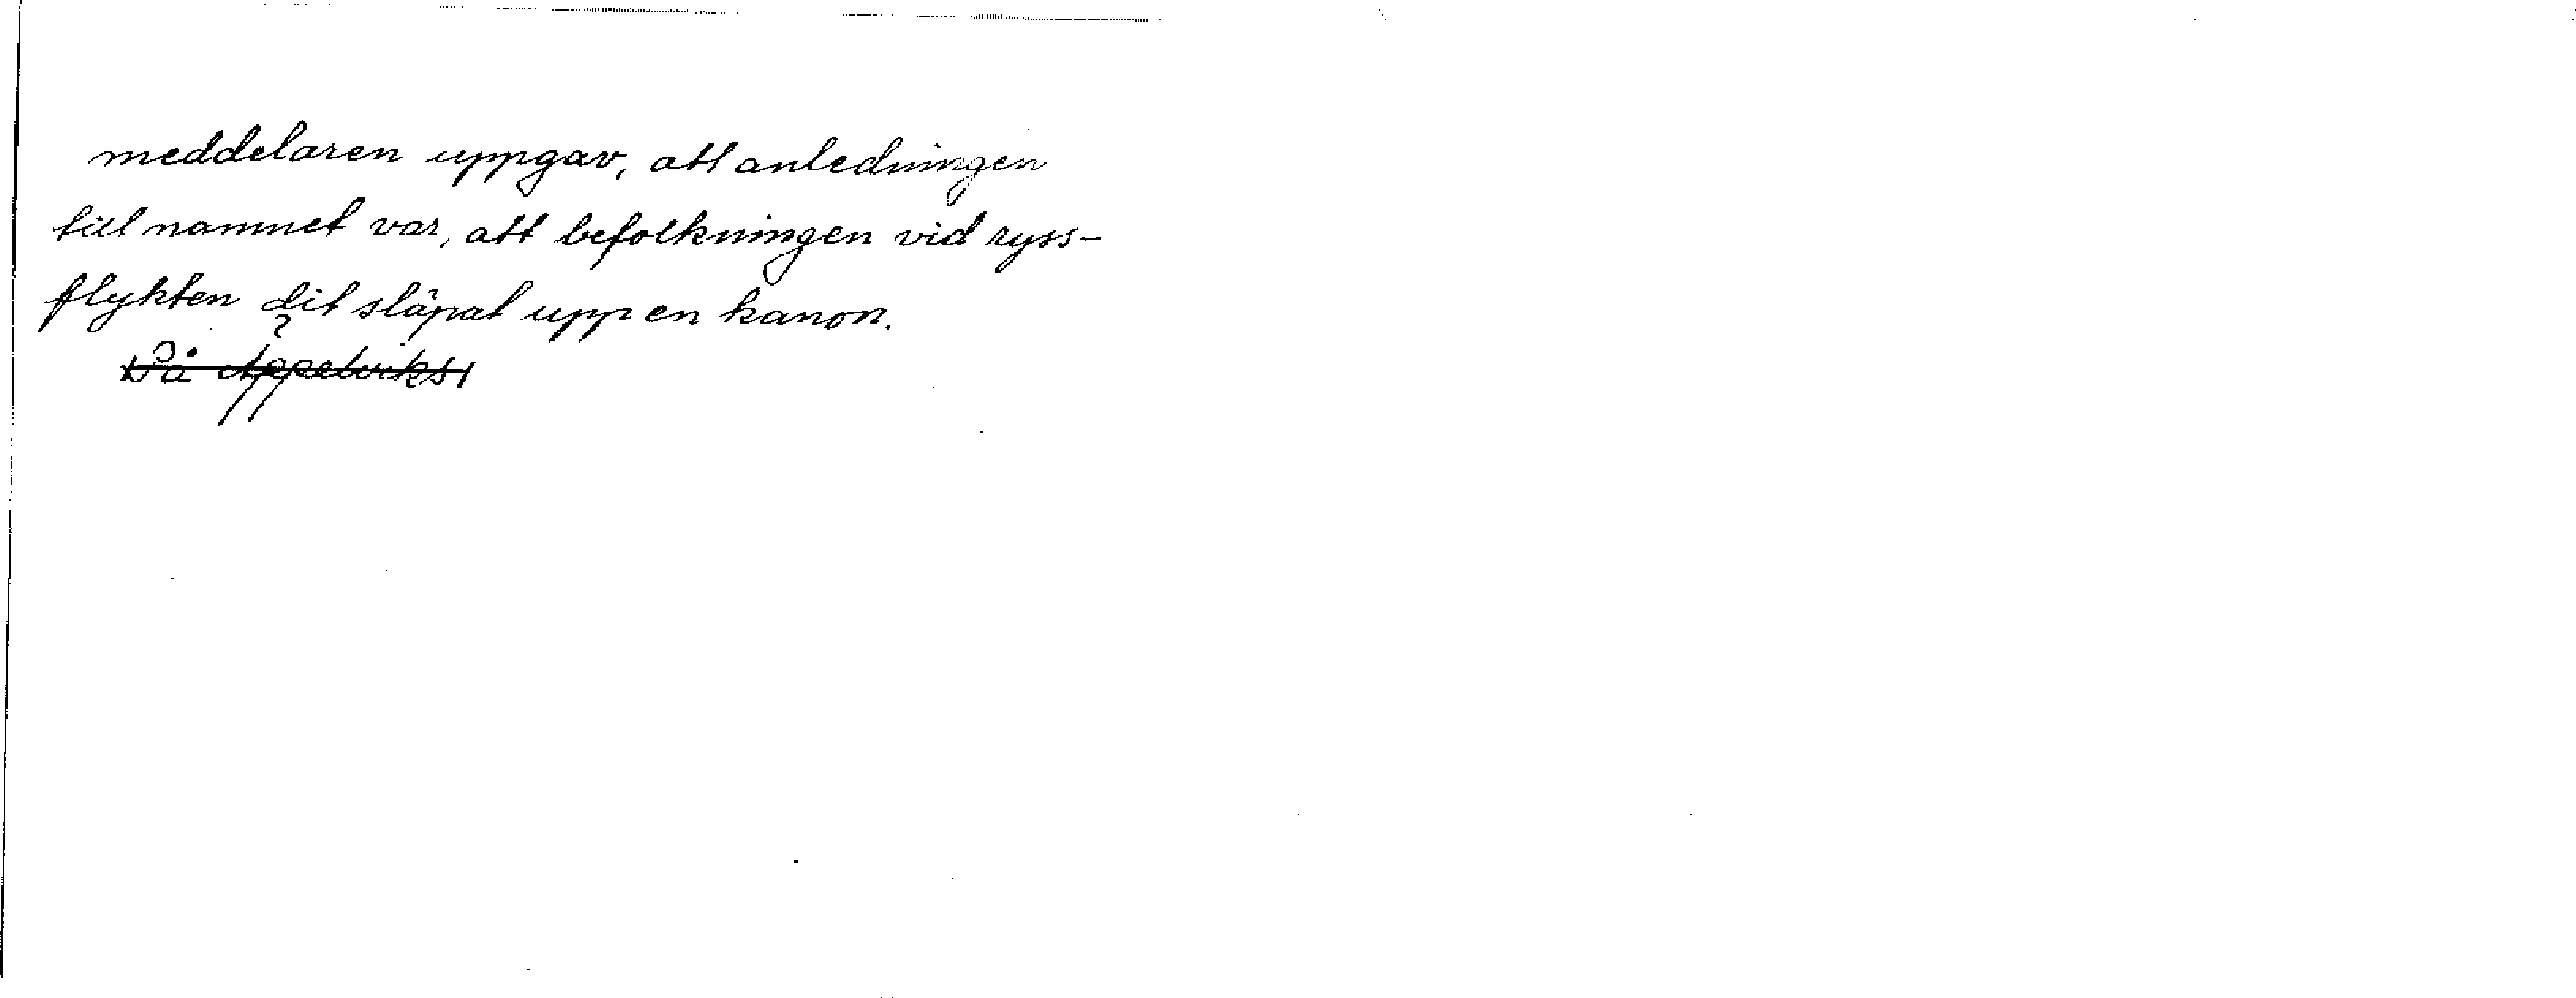 meddelaren uppgav, att anledningen
till namnet var, att befolkningen vid ryss-
flykten dit släpat upp en kanon.
På Appelviks